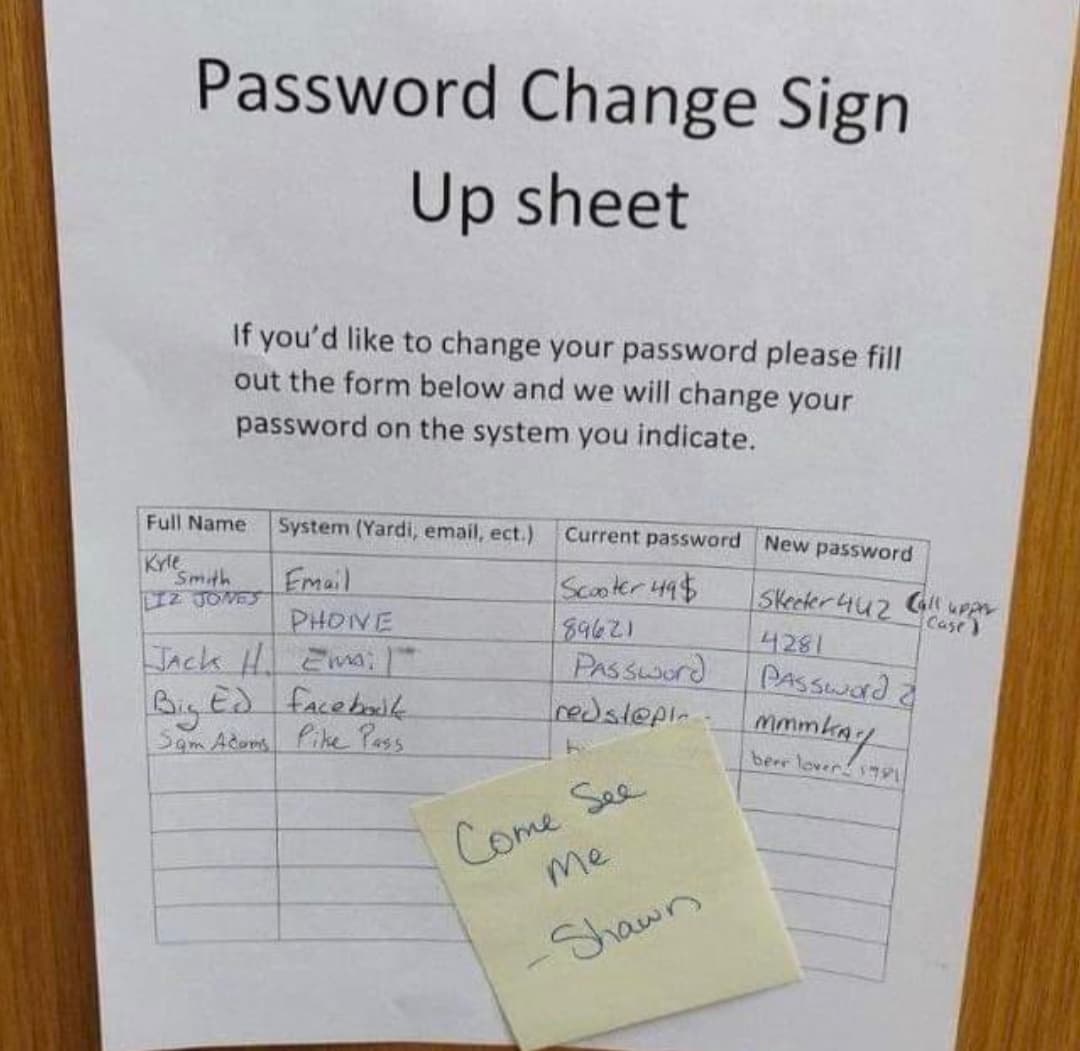 Password Change Sign
Up sheet
If you'd like to change your password please fill
out the form below and we will change your
password on the system you indicate.
Full Name System (Yardi, email, ect.) Current password New password
Kyle
Smith Email Scooter 49$ Skeeter442 (all upper
case)
LIZ JONES PHONE 89621 4281
JAck H. Email PAssword PAssword 2
Big Ed facebook mmmkAy
Sam Adams Pike Pass beer lover 1981
Come See
me
- Shawn